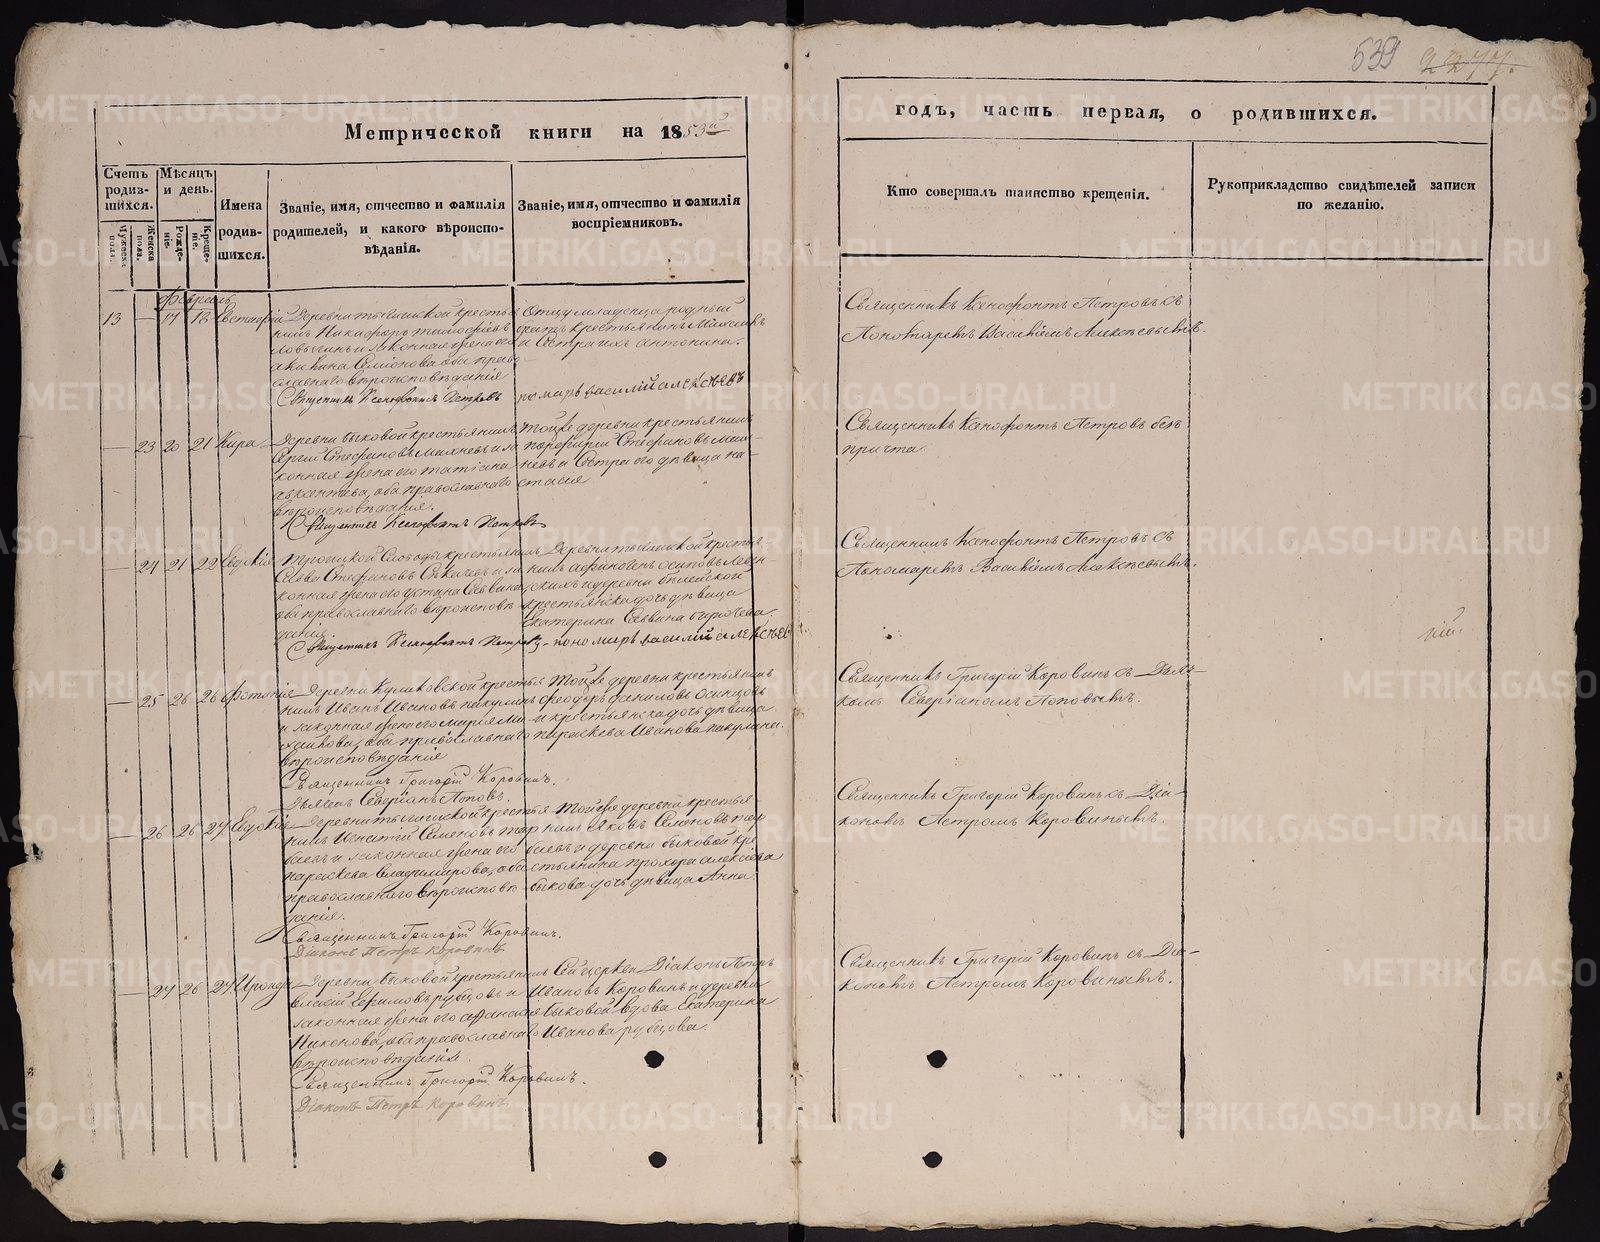 539 2277.
Метрической книги на 1853й
годъ, часть первая, о родившихся.
Счетъ родив-шихся.
Мѣсяцъ и день.
Мужеска пола.
Женска пола.
Рожде-ніе.
Креще-ніе.
Имена родив-шихся.
Званіе, имя, отчество и фамилія
родителей, и какого вѣроиспо-
вѣданія.
Званіе, имя, отчество и фамилія
воспріемниковъ.
Кто совершалъ таинство крещенія.
Рукоприкладство свидѣтелей записи
по желанію.
Февраль
13 — 17 18 Евстафій
крестья-
нинъ Никифоръ
и законная жена его
Акилина Семіонова оба право-
славнаго вѣроисповѣданія
Священникъ Ксенофонтъ Петровъ
Отцу младенца родный
братъ крестьянинъ
и сестра ихъ Антонина.
Пономарь Василій Алексѣевъ
Священникъ Ксенофонтъ Петровъ съ
Пономаремъ Василіемъ Алексѣевымъ.
— 23 20 21 Кира
Деревни Быковой крестьянинъ
Сергій Стефановъ и за-
конная жена его Татіана
Авксентьева, оба православнаго
вѣроисповѣданія.
Священникъ Ксенофонтъ Петровъ
Тойже деревни крестьянинъ
Порфирій Стефановъ
и сестра его дѣвица На-
стасія
Священникъ Ксенофонтъ Петровъ безъ
причта.
— 24 21 22 Евдокія
Троицкой Слободы крестьянинъ
Савва Стефановъ и за-
конная жена его Устина Саввина,
оба православнаго вѣроисповѣ-
данія.
Священникъ Ксенофонтъ Петровъ - пономарь Василій Алексѣевъ
крестья-
нинъ Афиногенъ Осиповъ
и деревни
крестьянская дочь дѣвица
Екатерина Саввина
Священникъ Ксенофонтъ Петровъ съ
Пономаремъ Василіемъ Алексѣевымъ.
— 25 26 26 Фотинія
Деревни Куликовской крестья-
нинъ Иванъ Ивановъ Пакулинъ
и законная жена его Марія Ми-
хайлова, оба православнаго
вѣроисповѣданія
Священникъ Григорій Коровинъ.
Дьячекъ Северіанъ Поповъ.
Тойже деревни крестьянинъ
Феодоръ Даниловъ Осинцовъ
и крестьянска дочь дѣвица
Параскева Иванова Пакулина.
Священникъ Григорій Коровинъ съ Дьяч-
комъ Северіаномъ Поповымъ.
— 26 26 27 Евдокія
крестья-
нинъ Игнатій Семеновъ
и законная жена его
Параскева Владимирова, оба
православнаго вѣроисповѣ-
данія.
Священникъ Григорій Коровинъ.
Діаконъ Петръ Коровинъ
Тойже деревни крестья-
нинъ Яковъ Семеновъ
и деревни Быковой кре-
стьянина Прохора Алексіева
Быкова дочь дѣвица Анна.
Священникъ Григорій Коровинъ съ Діа-
кономъ Петромъ Коровинымъ.
— 27 26 27 Ираида
Деревни Быковой крестьянинъ
Власій Ефимовъ Рубцовъ и
законная жена его Афанасія
Никонова, оба православнаго
вѣроисповѣданія.
Священникъ Григорій Коровинъ.
Діаконъ Петръ Коровинъ
Сей церкви Діаконъ Петръ
Ивановъ Коровинъ и деревни
Быковой вдова Екатерина
Иванова Рубцова.
Священникъ Григорій Коровинъ съ Діа-
кономъ Петромъ Коровинымъ.
METRIKI.GASO-URAL.RU